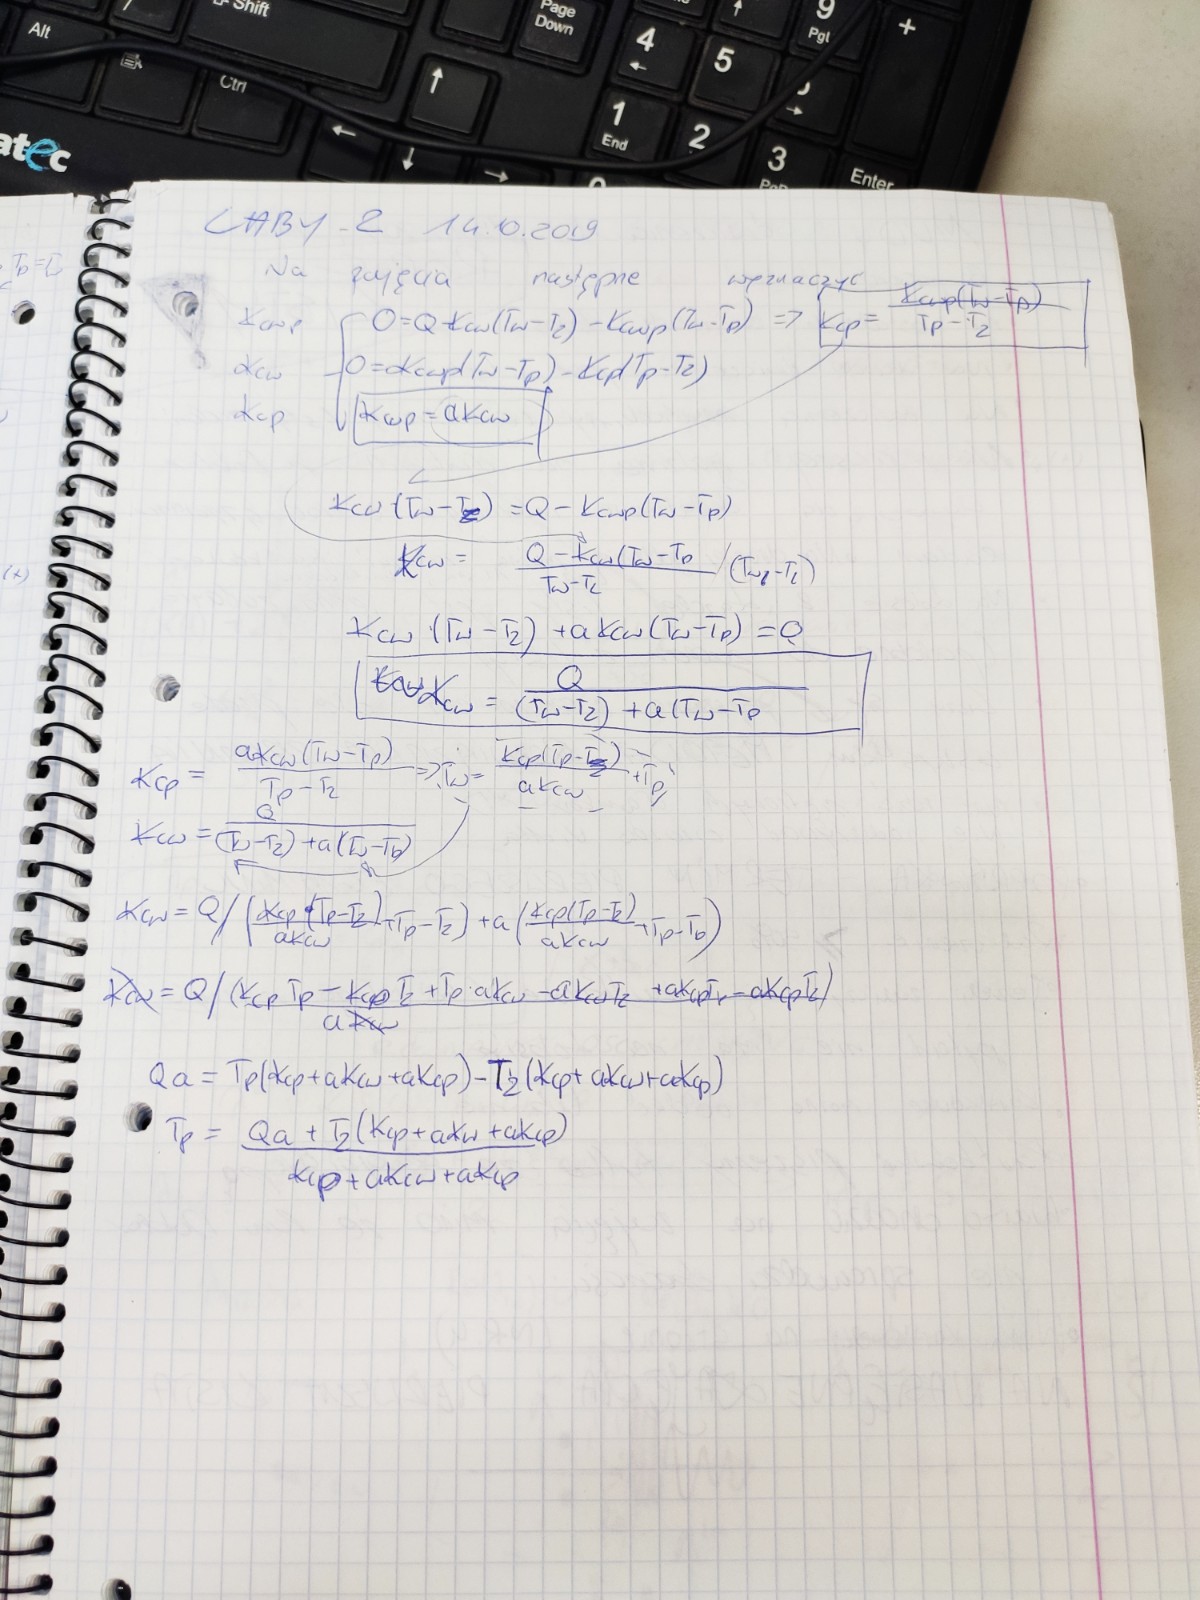 Alt
Shift
Ctrl
Page
Down
4
5
9
PgUp
+
1
End
2
3
Enter
atec
LABY-2 14.10.2019
Na zajęcia następne wyznaczyć
Kcwp 0=Q-Kcw(Tw-Tz)-Kcwp(Tw-Tp) => Kcp = Kcwp(Tw-Tp) / Tp-Tz
Kcw 0=Kcwp(Tw-Tp)-Kcp(Tp-Tz)
Kcp Kcwp = aKcw
Kcw·(Tw-Tz) = Q-Kcwp(Tw-Tp)
Kcw = Q-Kcw(Tw-Tp / Tw-Tz /(Tw-Tz)
Kcw·(Tw-Tz)+aKcw(Tw-Tp)=Q
Kcw = Q / (Tw-Tz)+a(Tw-Tp
Kcp = aKcw(Tw-Tp) / Tp-Tz => Tw = Kcp(Tp-Tz) / aKcw +Tp
Kcw = Q / (Tw-Tz)+a(Tw-Tp)
Kcw = Q/(Kcp(Tp-Tz) / aKcw +Tp-Tz)+a(Kcp(Tp-Tz) / aKcw +Tp-Tp)
Kcw = Q/(KcpTp-KcpTz+Tp·aKcw-aKcwTz+aKcpTp-aKcpTz) / aKcw
Qa = Tp(Kcp+aKcw+aKcp)-Tz(Kcp+aKcw+aKcp)
Tp = Qa+Tz(Kcp+aKcw+aKcp) / Kcp+aKcw+aKcp